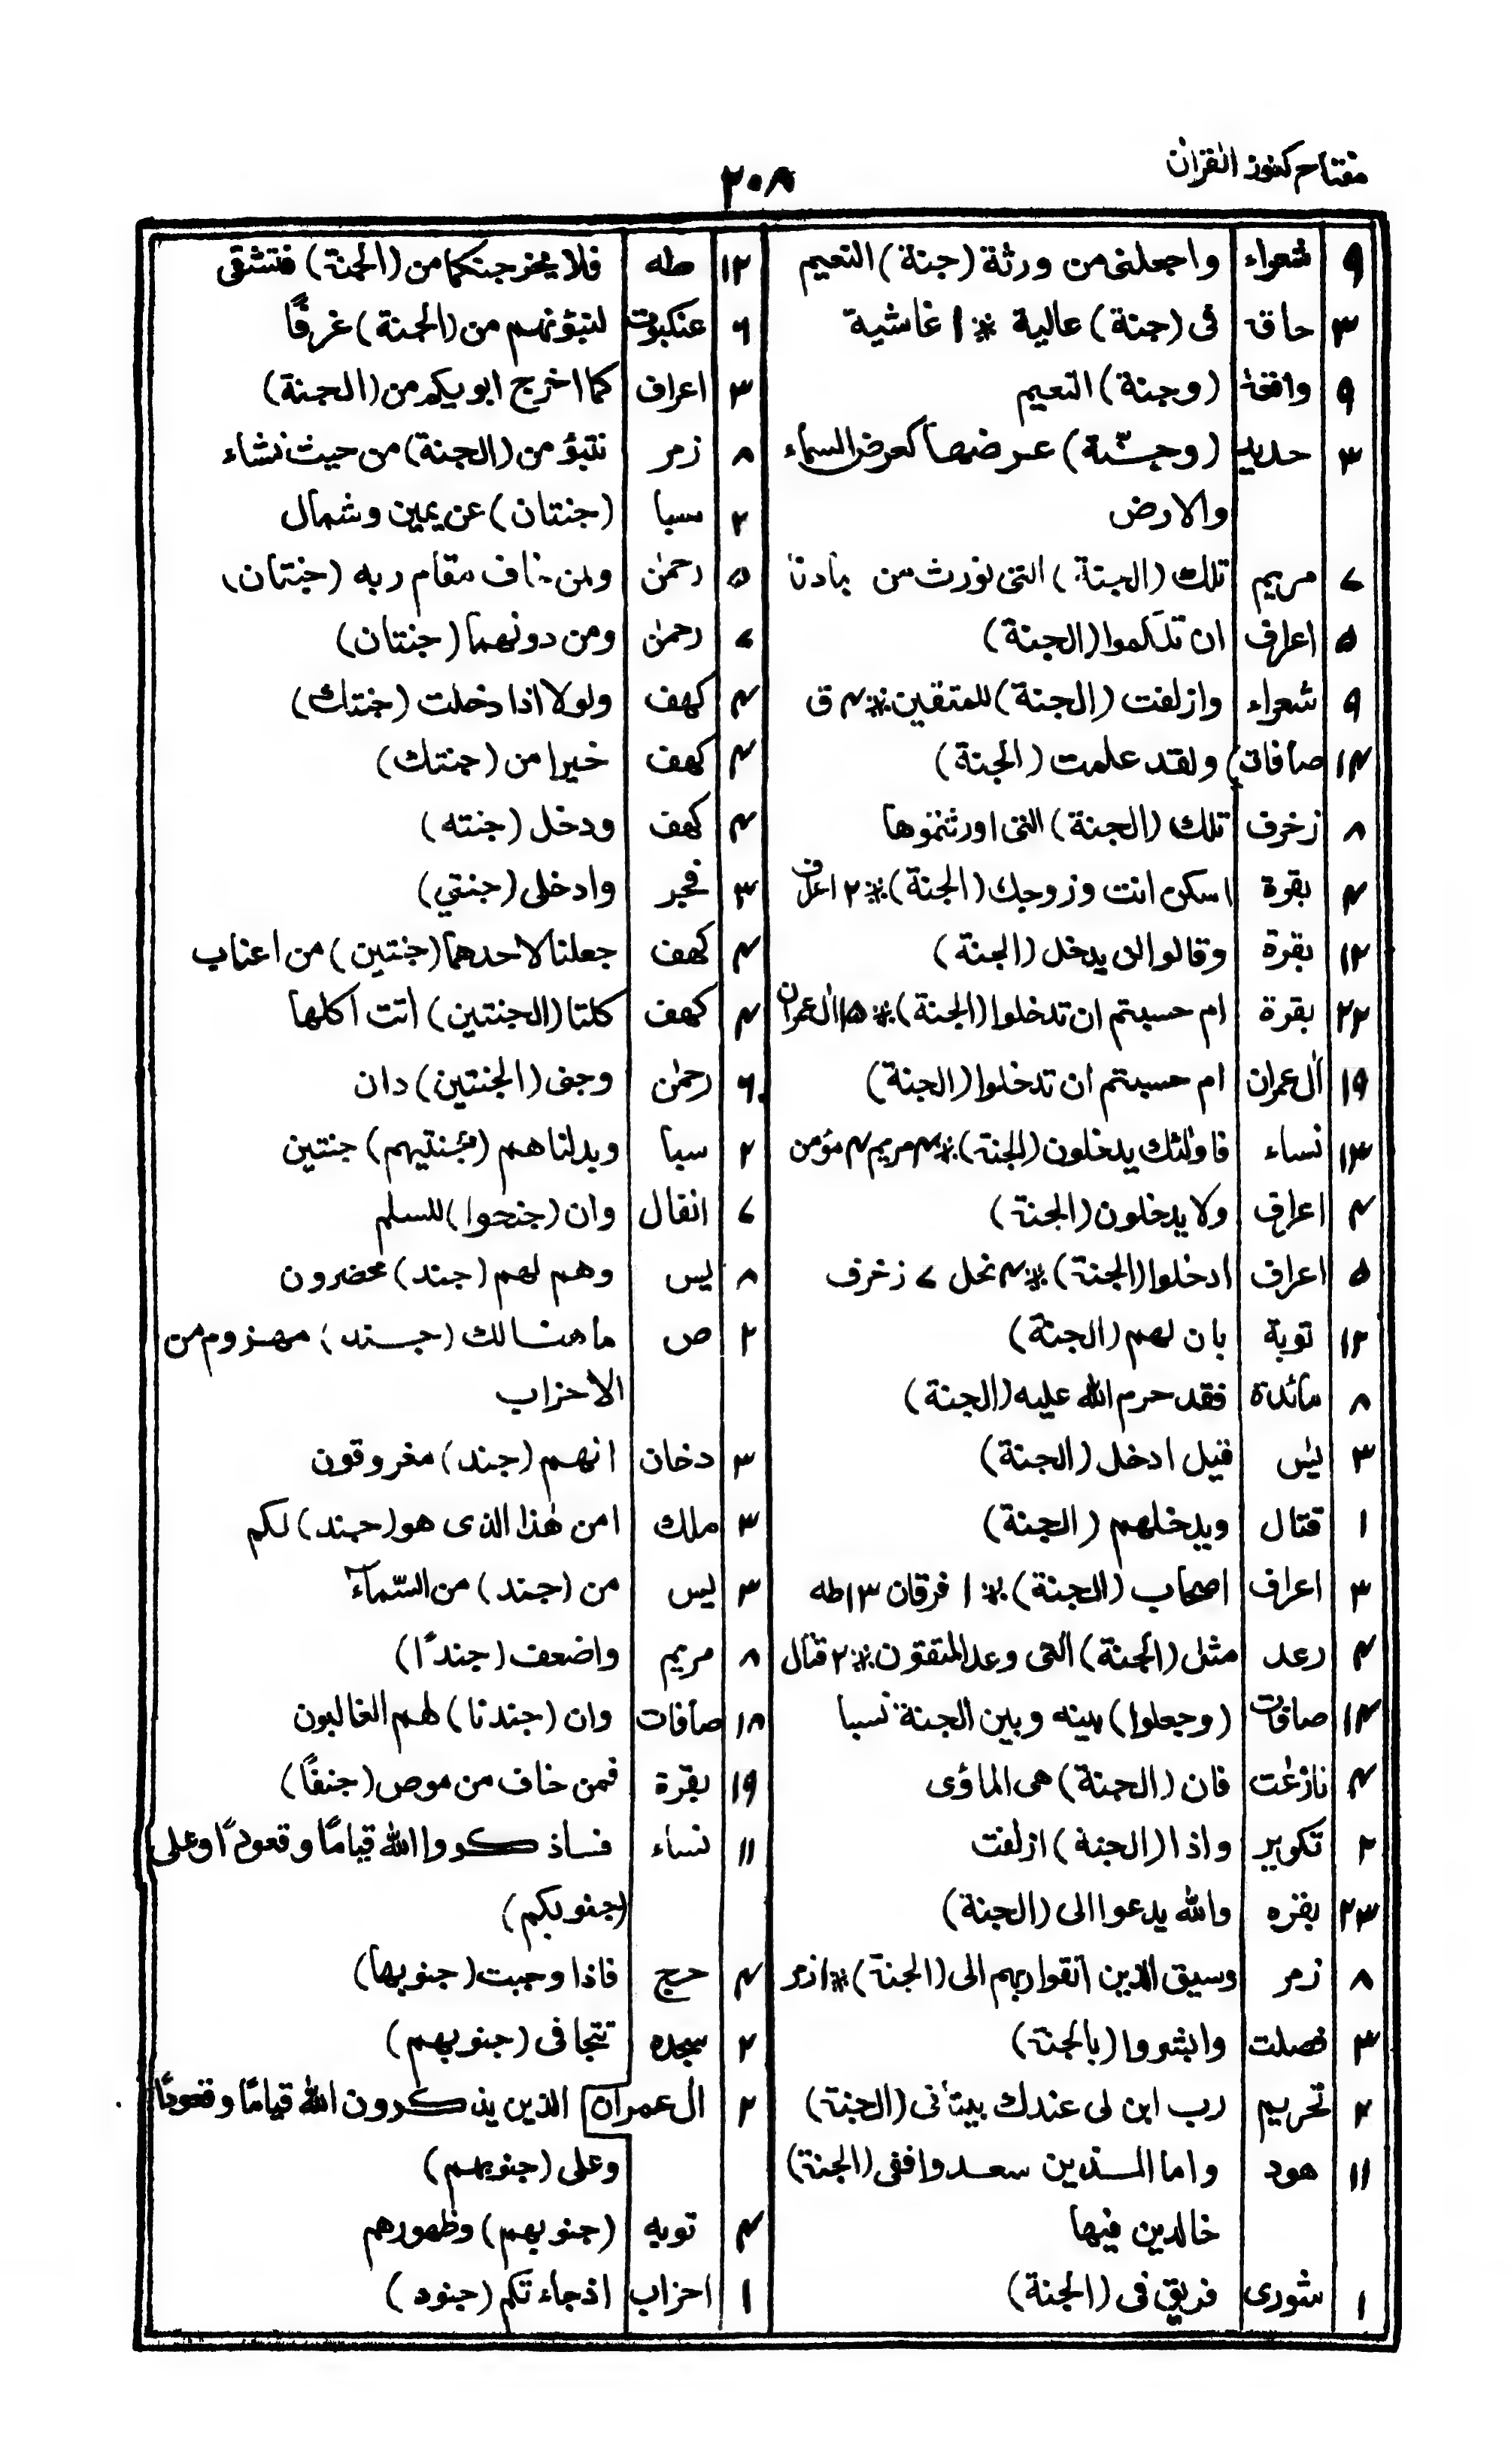 مفتاح كنوز القرآن
٢٠٨
٩ شعراء واجعلنى من ورثة (جنة) النعيم
٣ حاقه فى (جنة) عالية * ١ غاشية
٩ واقعة (وجنة) النعيم
٣ حديد (وجنّة) عرضها كعرض السماء
والارض
٧ مريم تلك (الجنة) التى نورث من بادنا
٥ اعراف ان تلكموا (الجنة)
٩ شعراء وازلفت (الجنة) للمتقين * ٣ ق
١٤ صافات ولقد علمت (الجنة)
٨ زخرف تلك (الجنة) التى اورثتموها
٤ بقرة اسكن انت وزوجك (الجنة) * ٢ اعراف
١٢ بقرة وقالوا لن يدخل (الجنة)
٢٢ بقرة ام حسبتم ان تدخلوا (الجنة) * ١٥ اٰل عمران
١٩ اٰل عمران ام حسبتم ان تدخلوا (الجنة)
١٣ نساء فاولئك يدخلون (الجنة) * ٤ مريم ٤ مؤمن
٤ اعراف ولا يدخلون (الجنة)
٥ اعراف ادخلوا (الجنة) * ٤ نحل ٧ زخرف
١٢ توبة بان لهم (الجنة)
٨ مائدة فقد حرم الله عليه (الجنة)
٣ يٰس قيل ادخل (الجنة)
١ قتال ويدخلهم (الجنة)
٣ اعراف اصحاب (الجنة) * ١ فرقان ١٣ طه
٤ رعد مثل (الجنة) التى وعد المتقون * ٢ قتال
١٤ صافات (وجعلوا) بينه وبين الجنة نسبا
٤ نازعٰت فان (الجنة) هى الماؤى
٢ تكوير واذا (الجنة) ازلفت
٢٣ بقره والله يدعوا الى (الجنة)
٨ زمر وسيق الذين اتقوا ربهم الى (الجنة) * ١ زمر
٣ فصلت وابشروا (بالجنة)
٢ تحريم رب ابن لى عندك بيتا فى (الجنة)
١١ هود واما الذين سعدوا ففى (الجنة)
خالدين فيها
١ شورى فريق فى (الجنة)
١٢ طه فلا يخرجنكما من (الجنة) فتشقى
٦ عنكبوت لنبؤنهم من (الجنة) غرفًا
٣ اعراف كما اخرج ابويكم من (الجنة)
٨ زمر نتبؤ من (الجنة) من حيث نشاء
٢ سبا (جنتان) عن يمين وشمال
٥ رحمٰن ولمن خاف مقام ربه (جنتان)
٧ رحمٰن ومن دونهما (جنتان)
٤ كهف ولولا اذا دخلت (جنتك)
٤ كهف خيرا من (جنتك)
٤ كهف ودخل (جنته)
٣ فجر وادخلى (جنتي)
٤ كهف جعلنا لاحدهما (جنتين) من اعناب
٤ كهف كلتا (الجنتين) اتت اكلها
٦ رحمٰن وجنى (الجنتين) دان
٢ سبا وبدلناهم (بجنتيهم) جنتين
٧ انفال وان (جنحوا) للسلم
٨ يس وهم لهم (جند) محضرون
٢ ص ما هنالك (جند) مهزوم من
الاحزاب
٣ دخان انهم (جند) مغروقون
٣ ملك امن هٰذا الذى هو (جند) لكم
٣ يس من (جند) من السّمآء
٨ مريم واضعف (جندًا)
١٨ صآفات وان (جندنا) لهم الغالبون
١٩ بقرة فمن خاف من موص (جنفًا)
١١ نساء فاذكروا الله قيامًا وقعودًا وعلى
(جنوبكم)
٤ حج فاذا وجبت (جنوبها)
٢ سجده تتجافى (جنوبهم)
٢ ال عمران الذين يذكرون الله قيامًا وقعودًا
وعلى (جنوبهم)
٤ توبه (جنوبهم) وظهورهم
١ احزاب اذ جاءتكم (جنود)